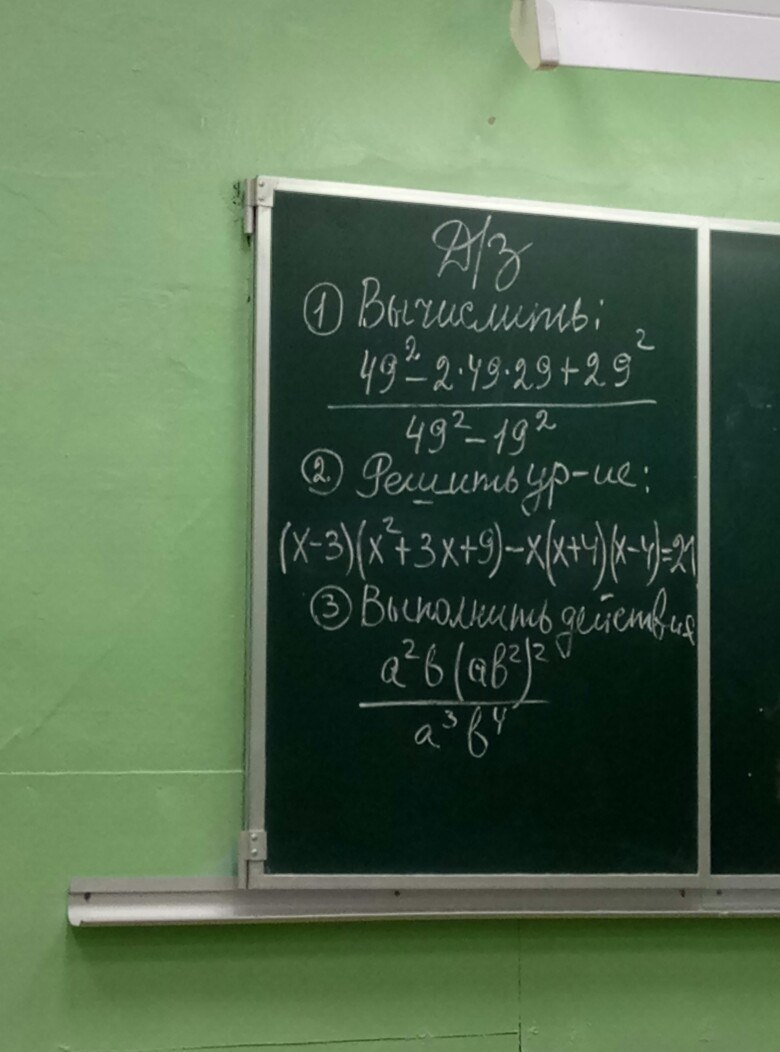 Д/з
① Вычислить:
49² - 2·49·29 + 29²
49² - 19²
② Решить ур-ие:
(x-3)(x²+3x+9)-x(x+4)(x-4)=21
③ Выполнить действия
a²b(ab²)²
a³b⁴